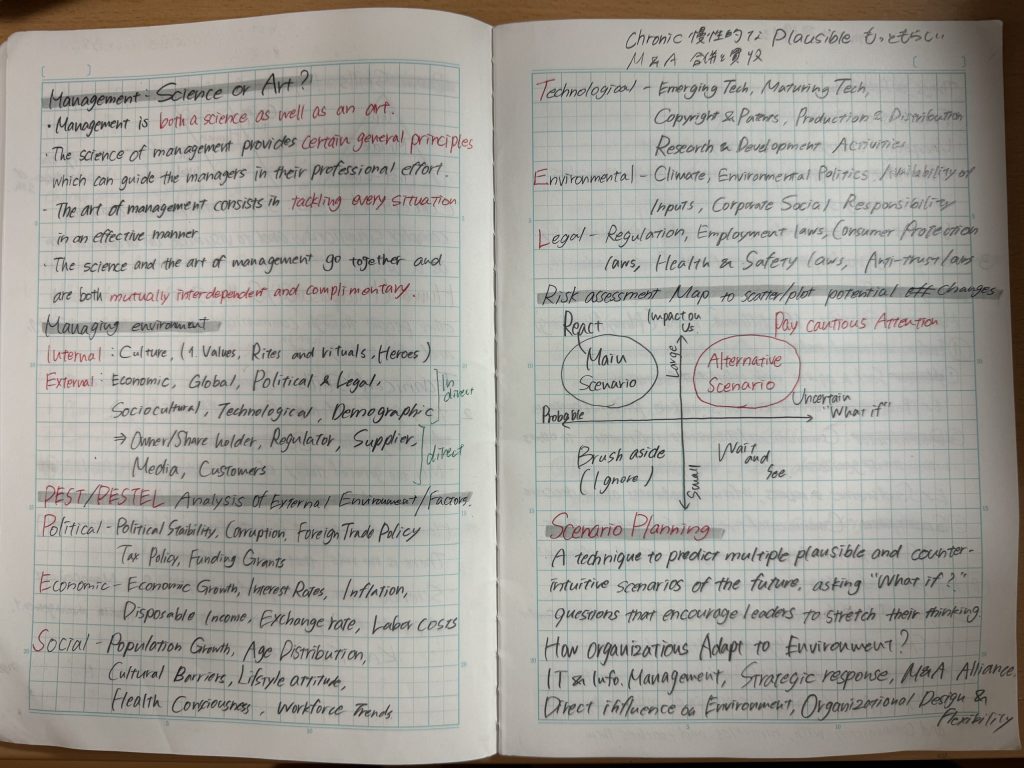 Management: Science or Art?
・Management is both a science as well as an art.
・The science of management provides certain general principles
which can guide the managers in their professional effort.
・The art of management consists in tackling every situation
in an effective manner
・The science and the art of management go together and
are both mutually interdependent and complimentary.
Managing environment
Internal: Culture, (1. Values, Rites and rituals, Heroes)
External: Economic, Global, Political & Legal,
Sociocultural, Technological, Demographic
In direct
⇒ Owner/Share holder, Regulator, Supplier,
Media, Customers
direct
PEST/PESTEL Analysis of External Environment/Factors.
Political - Political Staibility, Corruption, Foreign Trade Policy
Tax Policy, Funding Grants
Economic - Economic Growth, Interest Rates, Inflation,
Disposable Income, Exchange rate, Labor costs
Social - Population Growth, Age Distribution,
Cultural Barriers, Lifstyle attitude,
Health Consciousness, Workforce Trends
Chronic 慢性的な Plausible もっともらしい
M&A 合併と買収
Technological - Emerging Tech, Maturing Tech,
Copyright & Patents, Production & Distribution
Research & Development Activities
Environmental - Climate, Environmental Politics, Availability of
Inputs, Corporate Social Responsibility
Legal - Regulation, Employment laws, Consumer Protection
laws, Health & Safety laws, Anti-trust laws
Risk assessment Map to scatter/plot potential Changes
React
Impact on Us
Pay cautious Attention
Main Scenario
Large
Alternative Scenario
Probable
Uncertain
"What if"
Brush aside
(Ignore)
Small
Wait and See
Scenario Planning
A technique to predict multiple plausible and counter-
intuitive scenarios of the future. asking "What if?"
questions that encourage leaders to stretch their thinking
How Organizations Adapt to Environment?
IT & Info. Management, Strategic response, M&A Alliance.
Direct influence on Environment, Organizational Design &
Flexibility